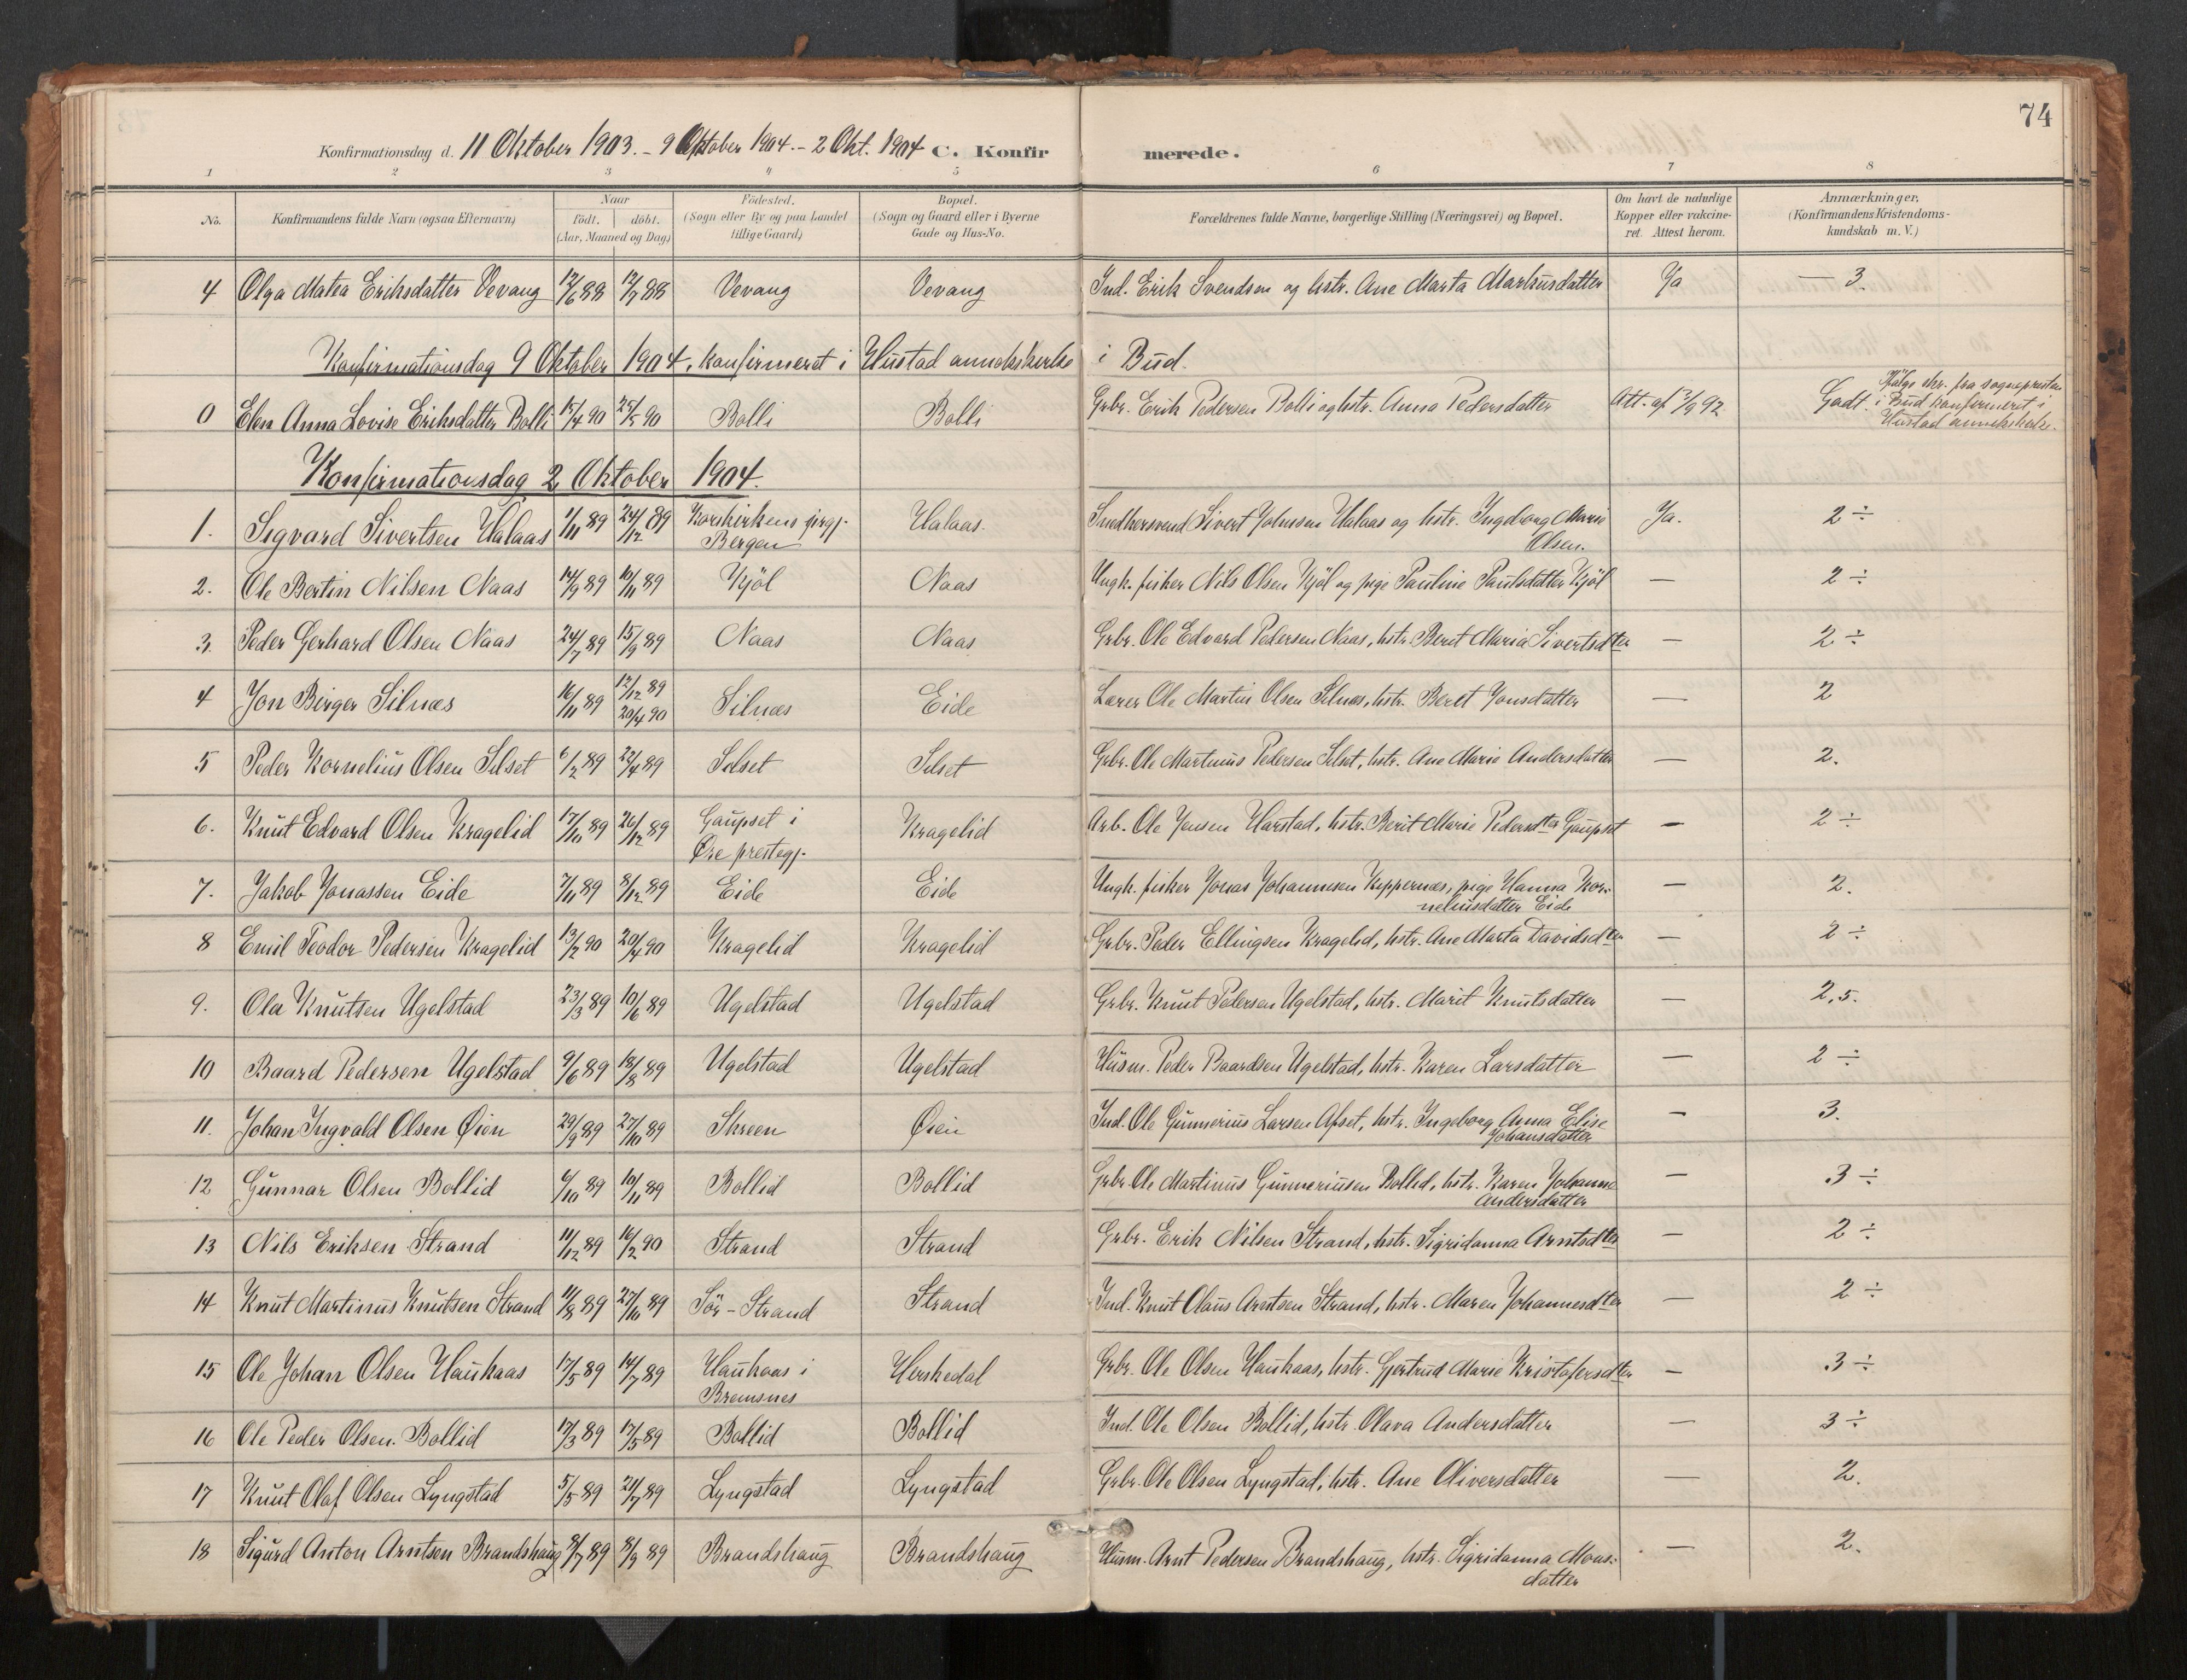 74
Konfirmationsdag d. 11 Oktober 1903. - 9 Oktober 1904. - 2 Okt. 1904 C. Konfirmerede.
1 2 3 4 5 6 7 8
No. Konfirmandens fulde Navn (ogsaa Efternavn) Naar födt. döbt. (Aar, Maaned og Dag) Födested. (Sogn eller By og paa Landet tillige Gaard) Bopæl. (Sogn og Gaard eller i Byerne Gade og Hus-No. Forældrenes fulde Navne, borgerlige Stilling (Næringsvei) og Bopæl. Om havt de naturlige Kopper eller vakcineret. Attest herom. Anmærkninger. (Konfirmandens Kristendomskundskab m. V.)
4 Olga Matea Eriksdatter Vevang 12/6 88 12/7 88 Vevang Vevang Ind. Erik Svendsen og hstr. Ane Marta Markusdatter Ja — 3.
Konfirmationsdag 9 Oktober 1904, konfirmeret i Hustad annekskirke i Bud.
0 Elen Anna Lovise Eriksdatter Bolli 15/4 90 25/5 90 Bolli Bolli Grbr. Erik Pedersen Bolli og hstr. Anna Pedersdatter Att. af 2/9 92 Godt. Ifölge skr. fra sognepresten
i Bud konfirmeret i
Hustad annekskirke.
Konfirmationsdag 2 Oktober 1904.
1. Sigvard Sivertsen Halaas 1/11 89 24/12 89 Korskirkens Halaas. Sivert Johnsen Halaas og hstr. Ingeborg Marie Ja. 2 ÷
Bergen Olsen.
2. Ole Bertin Nilsen Naas 14/9 89 10/11 89 Kjöl Naas Ungk. fisker Nils Olsen Kjöl og pige Pauline Paulsdatter Kjöl — 2 ÷
3. Peder Gerhard Olsen Naas 24/7 89 15/9 89 Naas Naas Grbr. Ole Edvard Pedersen Naas, hstr. Berit Maria Sivertsdter — 2 ÷
4 Jon Birger Silnæs 16/11 89 12/12 89 20/4 90 Silnæs Eide Lærer Ole Martin Olsen Silnæs, hstr. Beret Jonsdatter — 2
5 Peder Kornelius Olsen Silset 6/2 89 22/4 89 Silset Silset Grbr. Ole Martinus Pedersen Silset, hstr. Ane Marie Andersdatter — 2.
6. Knut Edvard Olsen Kragelid 17/10 89 26/12 89 Gaupset i Kragelid Arb. Ole Jensen Harstad, hstr. Berit Marie Pedersdter Gaupset — 2 ÷
Øre prestegj.
7. Jakob Jonassen Eide 7/11 89 8/12 89 Eide Eide Ungk. fisker Jonas Johannesen Keppernæs, pige Hanna Kor- — 2.
neliusdatter Eide
8 Emil Teodor Pedersen Kragelid 13/2 90 20/4 90 Kragelid Kragelid Grbr. Peder Ellingsen Kragelid, hstr. Ane Marta Davidsdter — 2 ÷
9. Ola Knutsen Ugelstad 23/3 89 10/6 89 Ugelstad Ugelstad Grbr. Knut Pedersen Ugelstad, hstr. Marit Knutsdatter — 2,5.
10 Baard Pedersen Ugelstad 9/6 89 18/8 89 Ugelstad Ugelstad Husm. Peder Baardsen Ugelstad, hstr. Karen Larsdatter — 2 ÷
11. Johan Ingvald Olsen Øien 29/9 89 27/10 89 Skreen Øien Ind. Ole Gunnerius Larsen Afset, hstr. Ingeborg Anna Elise — 3.
Johansdatter
12 Gunnar Olsen Bollid 6/10 89 10/11 89 Bollid Bollid Grbr. Ole Martinus Gunneriusen Bollid, hstr. Karen Johanne — 3 ÷
Andersdatter
13 Nils Eriksen Strand 11/12 89 16/2 90 Strand Strand Grbr. Erik Nilsen Strand, hstr. Sigridanna Arntsdter — 2 ÷
14 Knut Martinus Knutsen Strand 11/8 89 27/10 89 Sör-Strand Strand Ind. Knut Olaus Arntsen Strand, hstr. Maren Johannesdter — 2 ÷
15 Ole Johan Olsen Haukaas 17/5 89 14/7 89 Haukaas i Herskedal Grbr. Ole Olsen Haukaas, hstr. Gjertrud Marie Kristofersdter — 3 ÷
Bremsnes
16 Ole Peder Olsen Bollid 17/3 89 17/5 89 Bollid Bollid Ind. Ole Olsen Bollid, hstr. Olava Andersdatter — 3 ÷
17 Knut Olaf Olsen Lyngstad 5/5 89 21/7 89 Lyngstad Lyngstad Grbr. Ole Olsen Lyngstad, hstr. Ane Oliversdatter — 2.
18 Sigurd Anton Arntsen Brandshaug 8/7 89 8/9 89 Brandshaug Brandshaug Husm. Arnt Pedersen Brandshaug, hstr. Sigridanna Mons- — 2.
datter